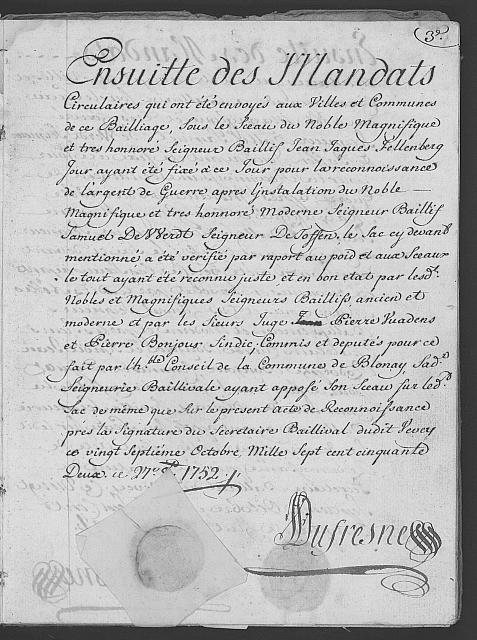 3e.
Ensuitte des Mandats
Circulaires qui ont été envoyés aux Villes et Communes
de ce Bailliage, Sous le Sceau du Noble Magnifique
et tres honnoré Seigneur Baillif Jean Jaques Fellenberg
Jour ayant été fixé à ce Jour pour la réconnoissance
de l'argent de Guerre apres l'instalation du Noble —
Magnifique et tres honnoré Moderne Seigneur Baillif
Samuel De Werdt Seigneur De Toffen, le Sac cy devant
mentionné a été verifié par raport au poid et aux Sceaux
le tout ayant été reconnu juste et en bon etat par lesdt.
Nobles et Magnifiques Seigneurs Baillifs ancien et
moderne et par les Sieurs Juge Pierre Vuadens
et Pierre Bonjour Sindic, Commis et deputés pour ce
fait par l'h.ble Conseil de la Commune de Blonay, Sad.e
Seigneurie Baillivale ayant apposé Son Sceau sur led.t
Sac de même que Sur le present acte de Reconnoissance
pres la Signature du Secretaire Baillival dudit Vevey
ce vingt Septième Octobre, Mille Sept cent cinquante
Deux. ce 27e 8bre 1752.
Dufresne